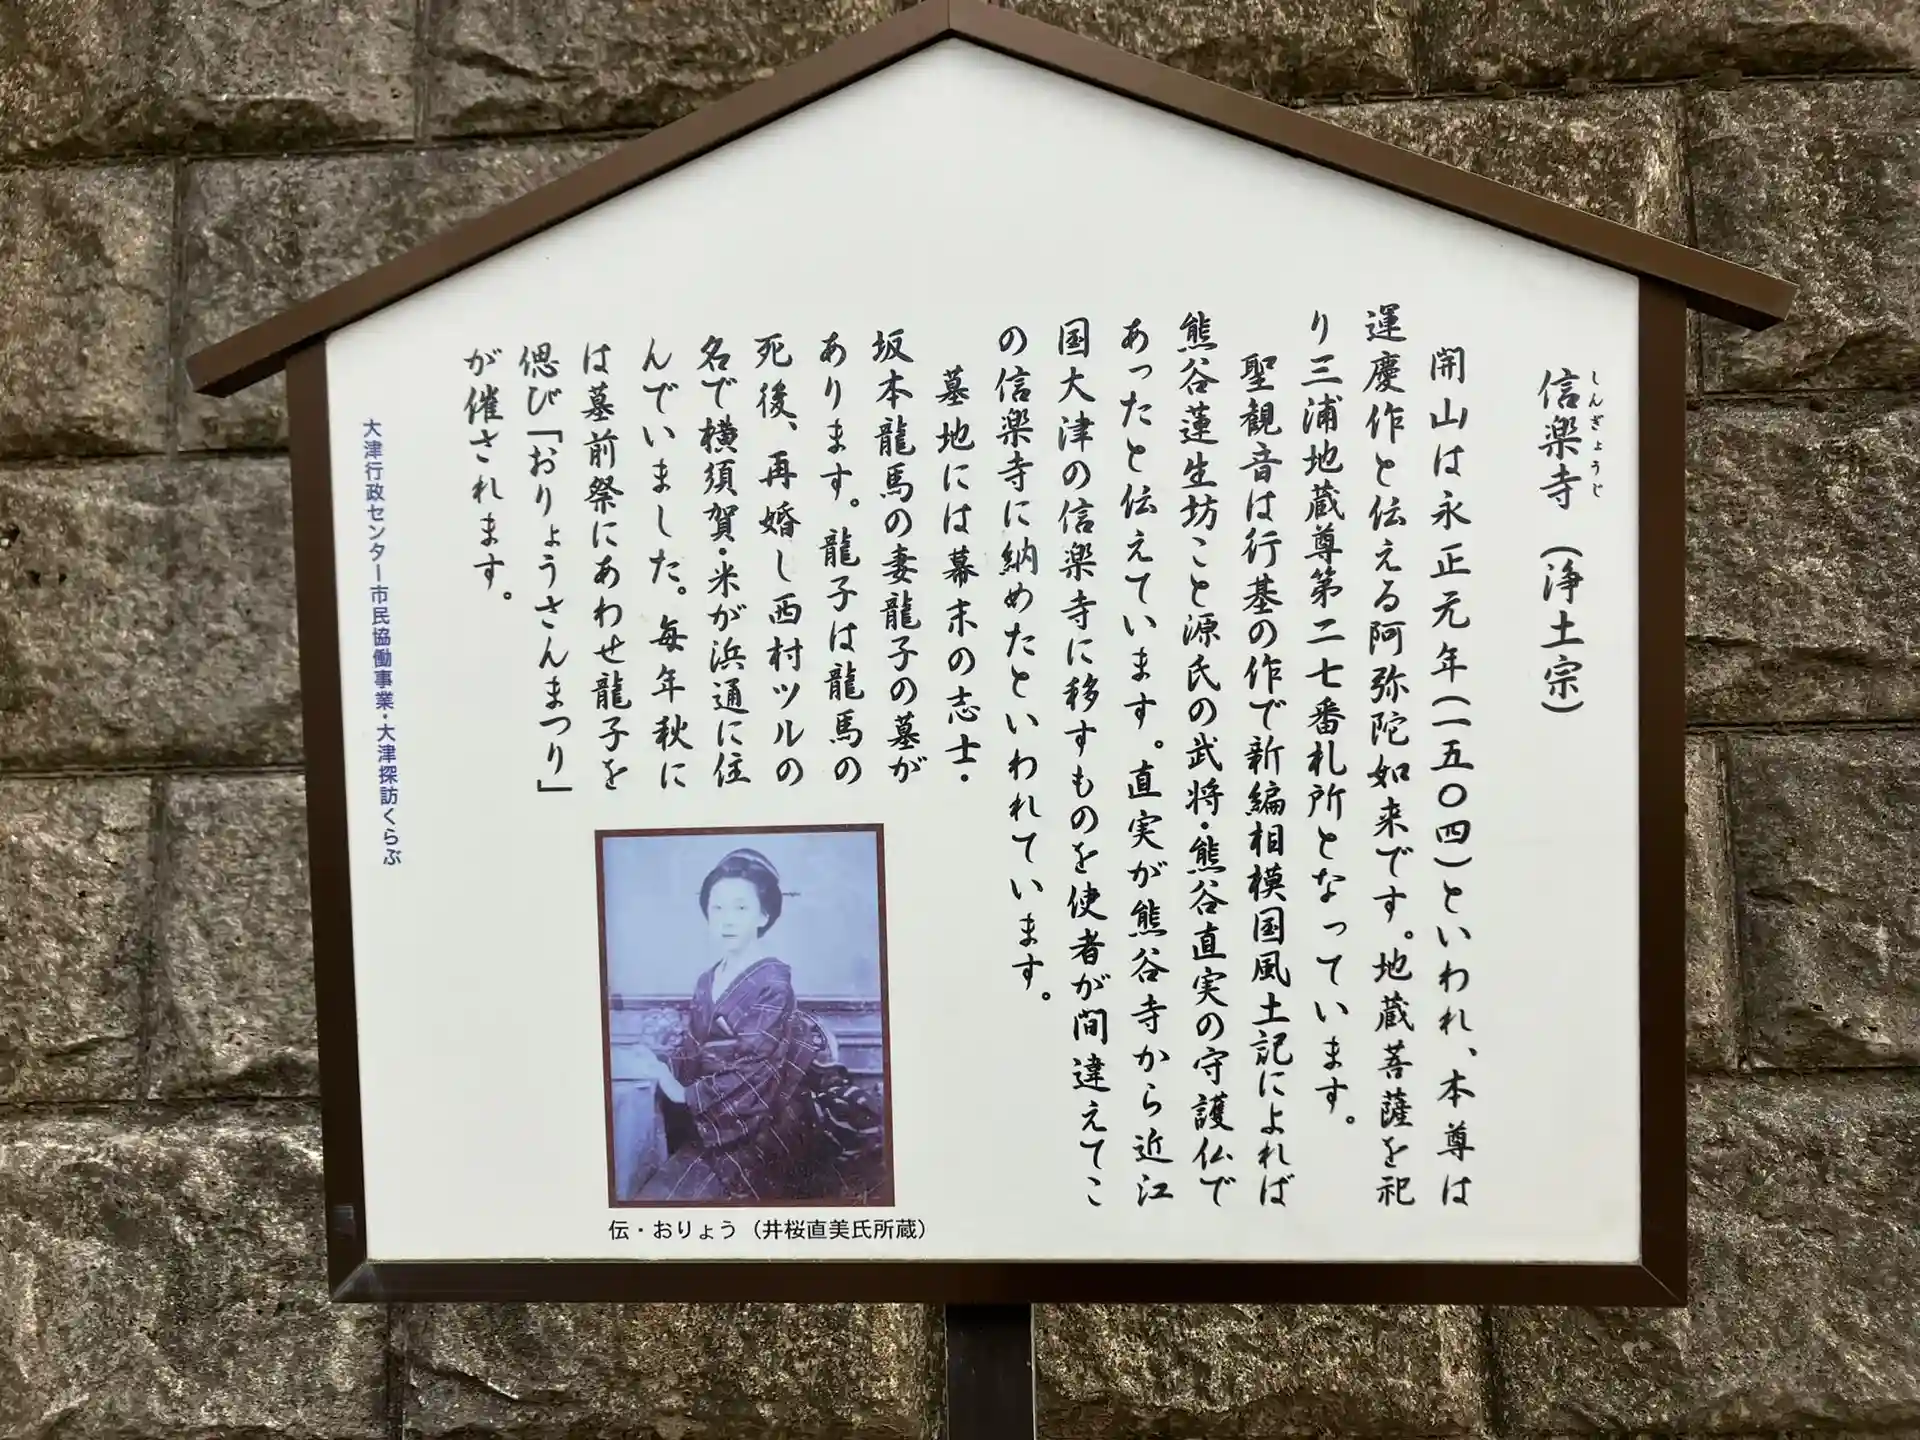 しんぎょうじ
信楽寺（浄土宗）
開山は永正元年（一五〇四）といわれ、本尊は
運慶作と伝える阿弥陀如来です。地蔵菩薩を祀
り三浦地蔵尊第二七番札所となっています。
聖観音は行基の作で新編相模国風土記によれば
熊谷蓮生坊こと源氏の武将・熊谷直実の守護仏で
あったと伝えています。直実が熊谷寺から近江
国大津の信楽寺に移すものを使者が間違えてこ
の信楽寺に納めたといわれています。
墓地には幕末の志士・
坂本龍馬の妻龍子の墓が
あります。龍子は龍馬の
死後、再婚し西村ツルの
名で横須賀・米が浜通に住
んでいました。毎年秋に
は墓前祭にあわせ龍子を
偲び「おりょうさんまつり」
が催されます。
大津行政センター市民協働事業・大津探訪くらぶ
伝・おりょう（井桜直美氏所蔵）